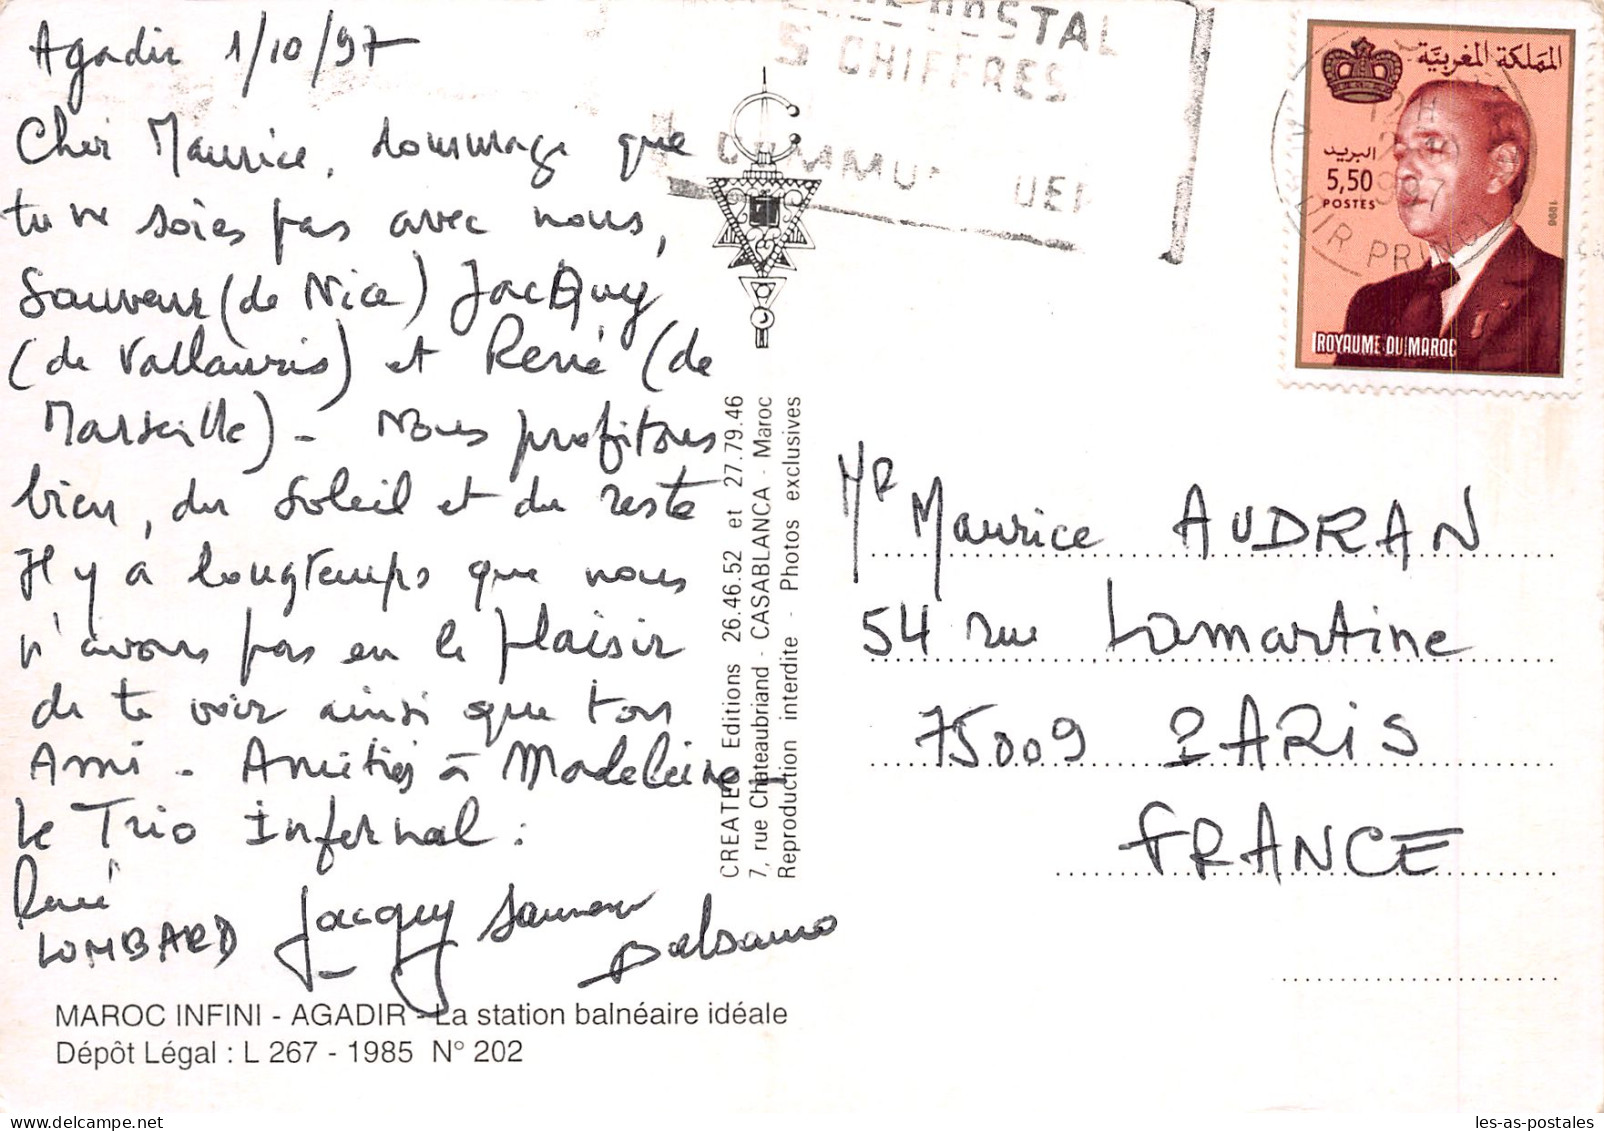 Agadir 1/10/97
Cher Maurice, dommage que
tu ne soies pas avec nous,
Sauveur (de Nice) Jacquy
(de Vallauris) et René (de
Marseille) - Nous profitons
bien, du soleil et du reste
Il y a longtemps que nous
n'avons pas eu le plaisir
de te voir ainsi que ton
Ami - Amitiés à Madeleine -
Le Trio Infernal :
René
LOMBARD Jacquy Sauveur
Balsamo
MAROC INFINI - AGADIR - La station balnéaire idéale
Dépôt Légal : L 267 - 1985 N° 202
CREATEC Editions 26.46.52 et 27.79.46
7, rue Chateaubriand - CASABLANCA - Maroc
Reproduction interdite - Photos exclusives
POSTAL
5 CHIFFRES
المملكة المغربية
البريد
5,50
POSTES
1996
ROYAUME DU MAROC
12H
1997
Mr Maurice AUDRAN
54 rue Lamartine
75009 PARIS
FRANCE
les-as-postales